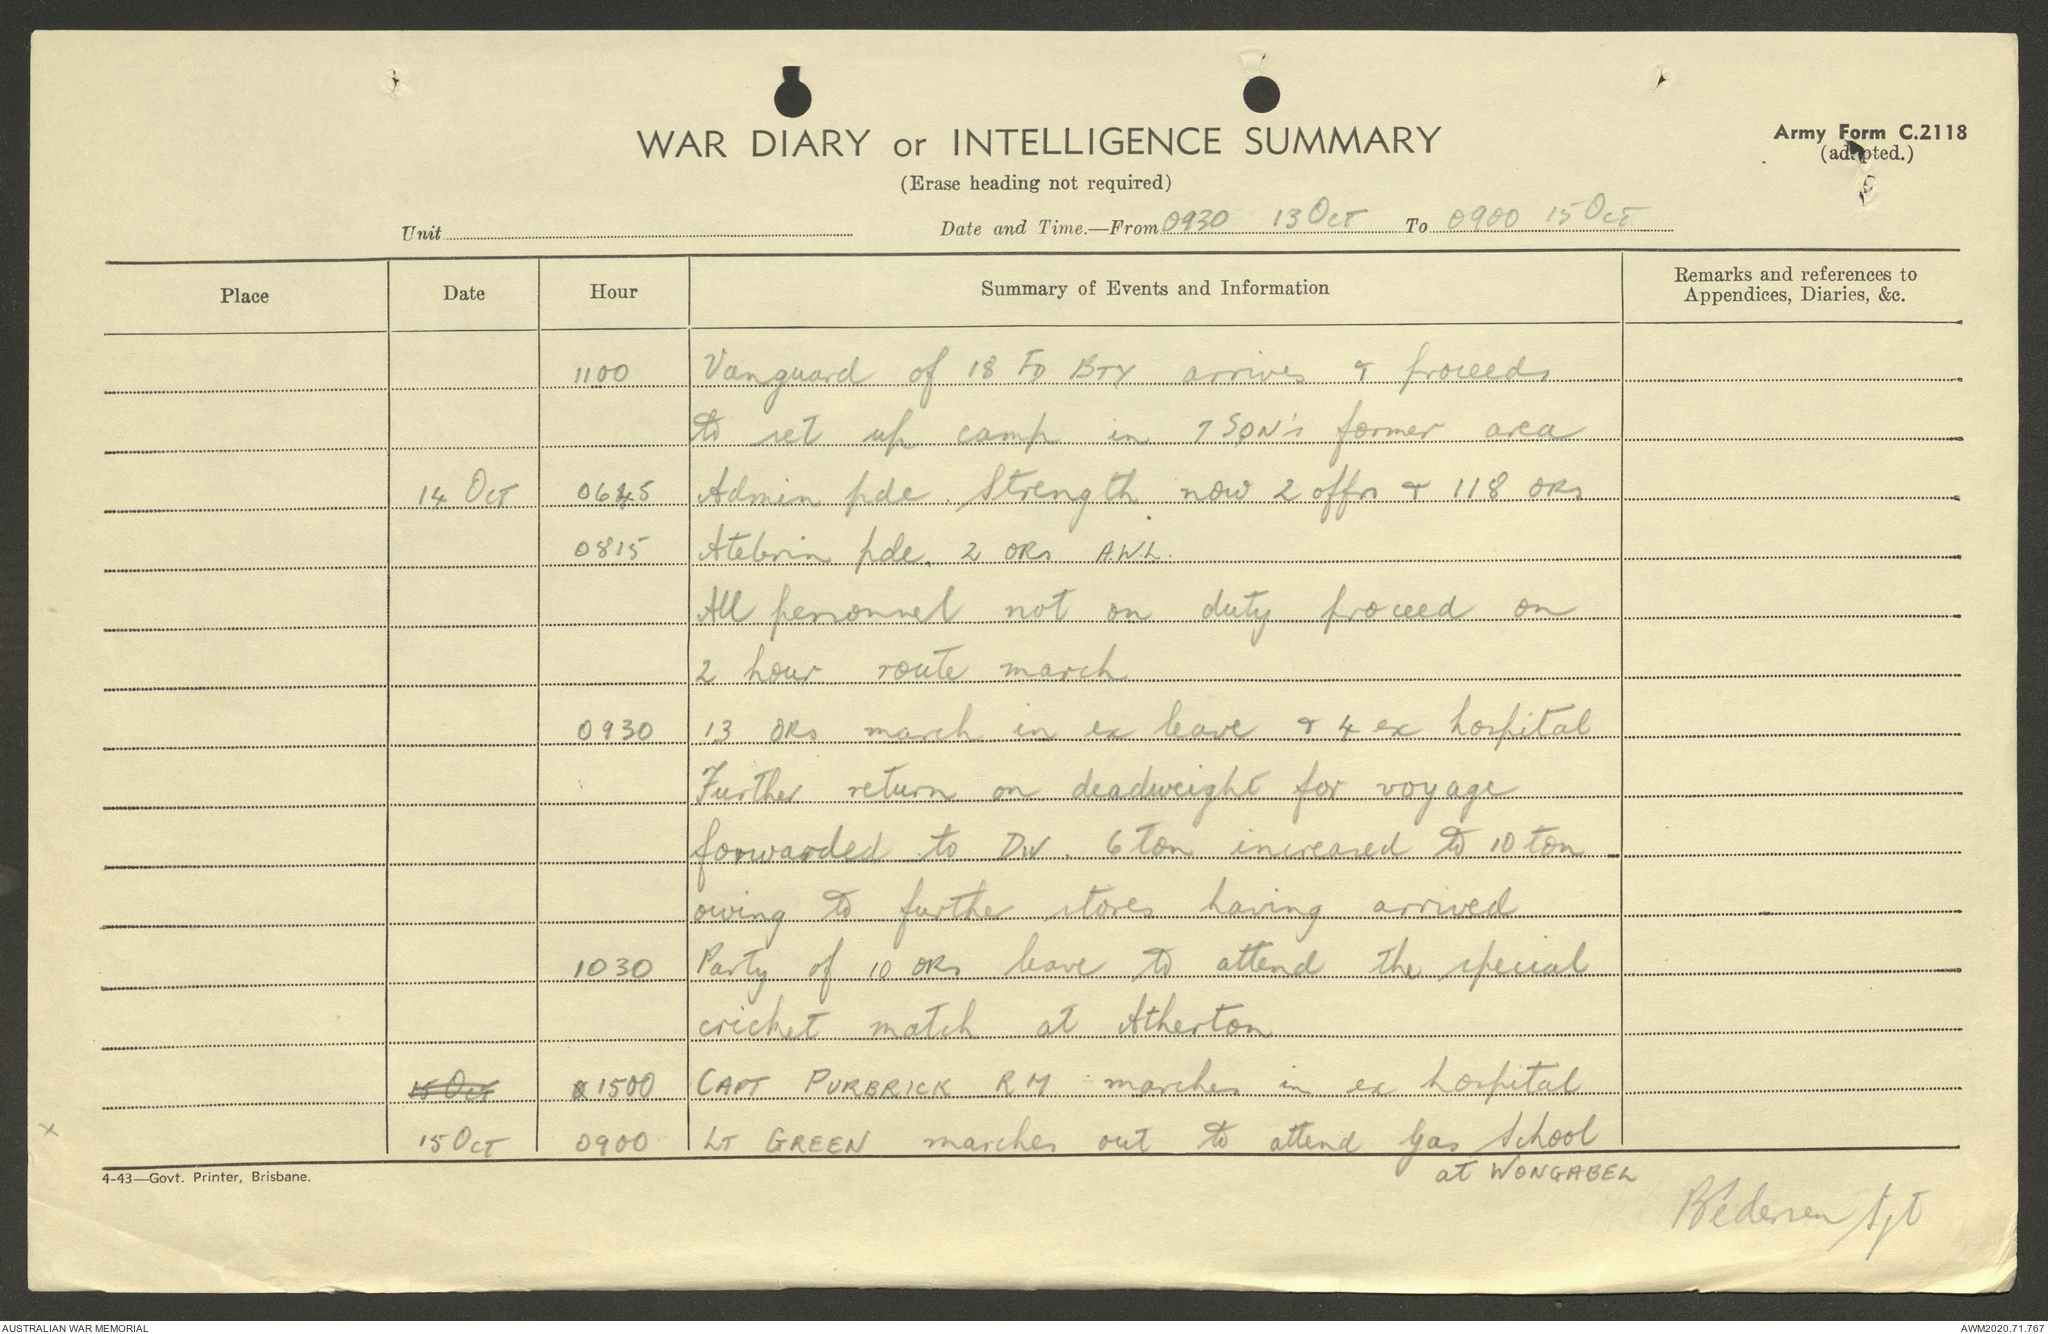 WAR DIARY or INTELLIGENCE SUMMARY
Army Form C.2118
(adapted.)
(Erase heading not required)
Unit
Date and Time.—From 0930 13 Oct To 0900 15 Oct
Place Date Hour Summary of Events and Information Remarks and references to Appendices, Diaries, &c.
1100 Vanguard of 18 FD BTY arrives & proceeds
to set up camp in 7 SQN's former area
14 Oct 0645 Admin pde. Strength now 2 offrs & 118 ORs
0815 Atebrin pde. 2 ORs A.W.L.
All personnel not on duty proceed on
2 hour route march
0930 13 ORs march in ex leave & 4 ex hospital
Further return on deadweight for voyage
forwarded to DIV. 6 ton increased to 10 ton
owing to further stores having arrived
1030 Party of 10 ORs leave to attend the special
cricket match at Atherton
15 Oct 1500 CAPT PURBRICK R M marches in ex hospital
x 15 Oct 0900 LT GREEN marches out to attend Gas School
at WONGABEL
4-43—Govt. Printer, Brisbane.
Pedersen Sgt
AUSTRALIAN WAR MEMORIAL
AWM2020.71.767